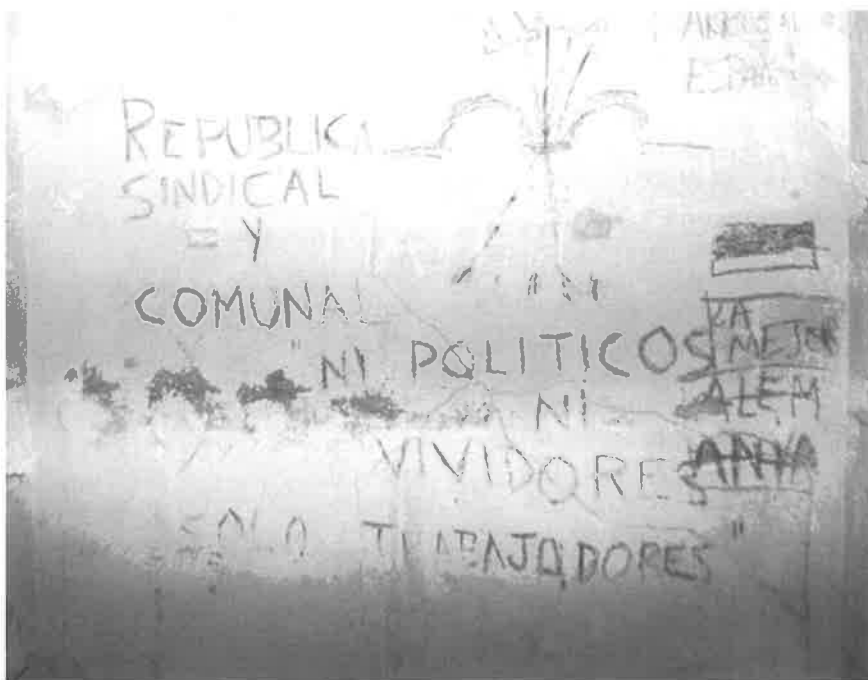 REPUBLICA
SINDICAL
= Y
COMUNAL
"NI POLITICOS
NI
VIVIDORES
SOLO TRABAJADORES"
LA
MEJOR
ALEM
ANYA